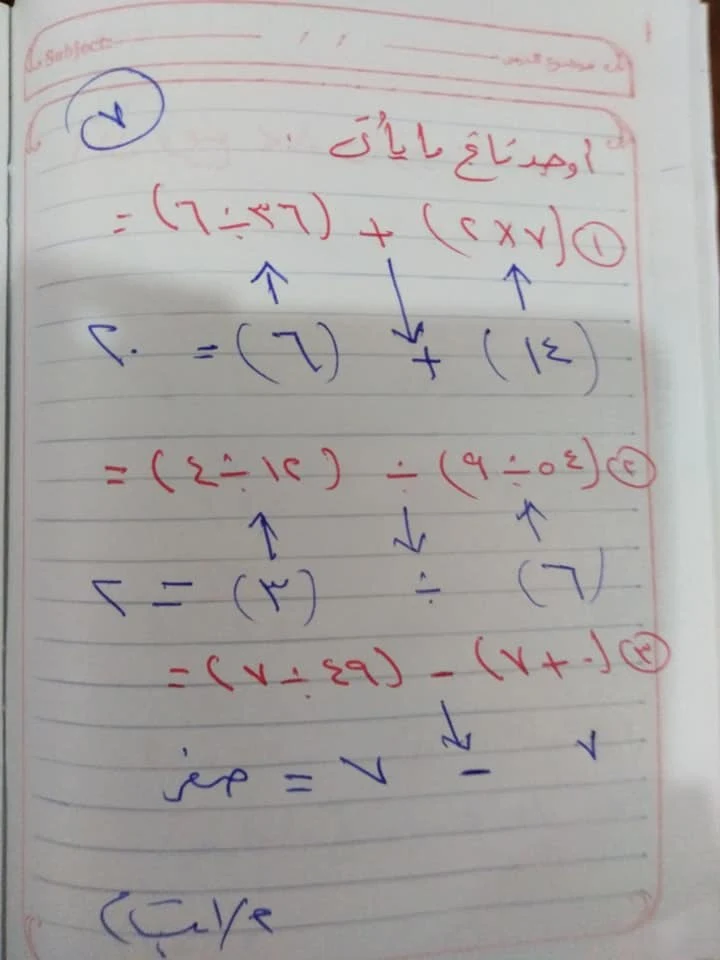 Subject:
موضوع الدرس
٧
أوجد ناتج ما يأتي :
① (٧×٢) + (٣٦÷٦) =
(١٤) + (٦) = ٢٠
② (٥٤÷٩) ÷ (١٢÷٤) =
(٦) ÷ (٣) = ٢
③ (٠+٧) - (٤٩÷٧) =
٧ - ٧ = صفر